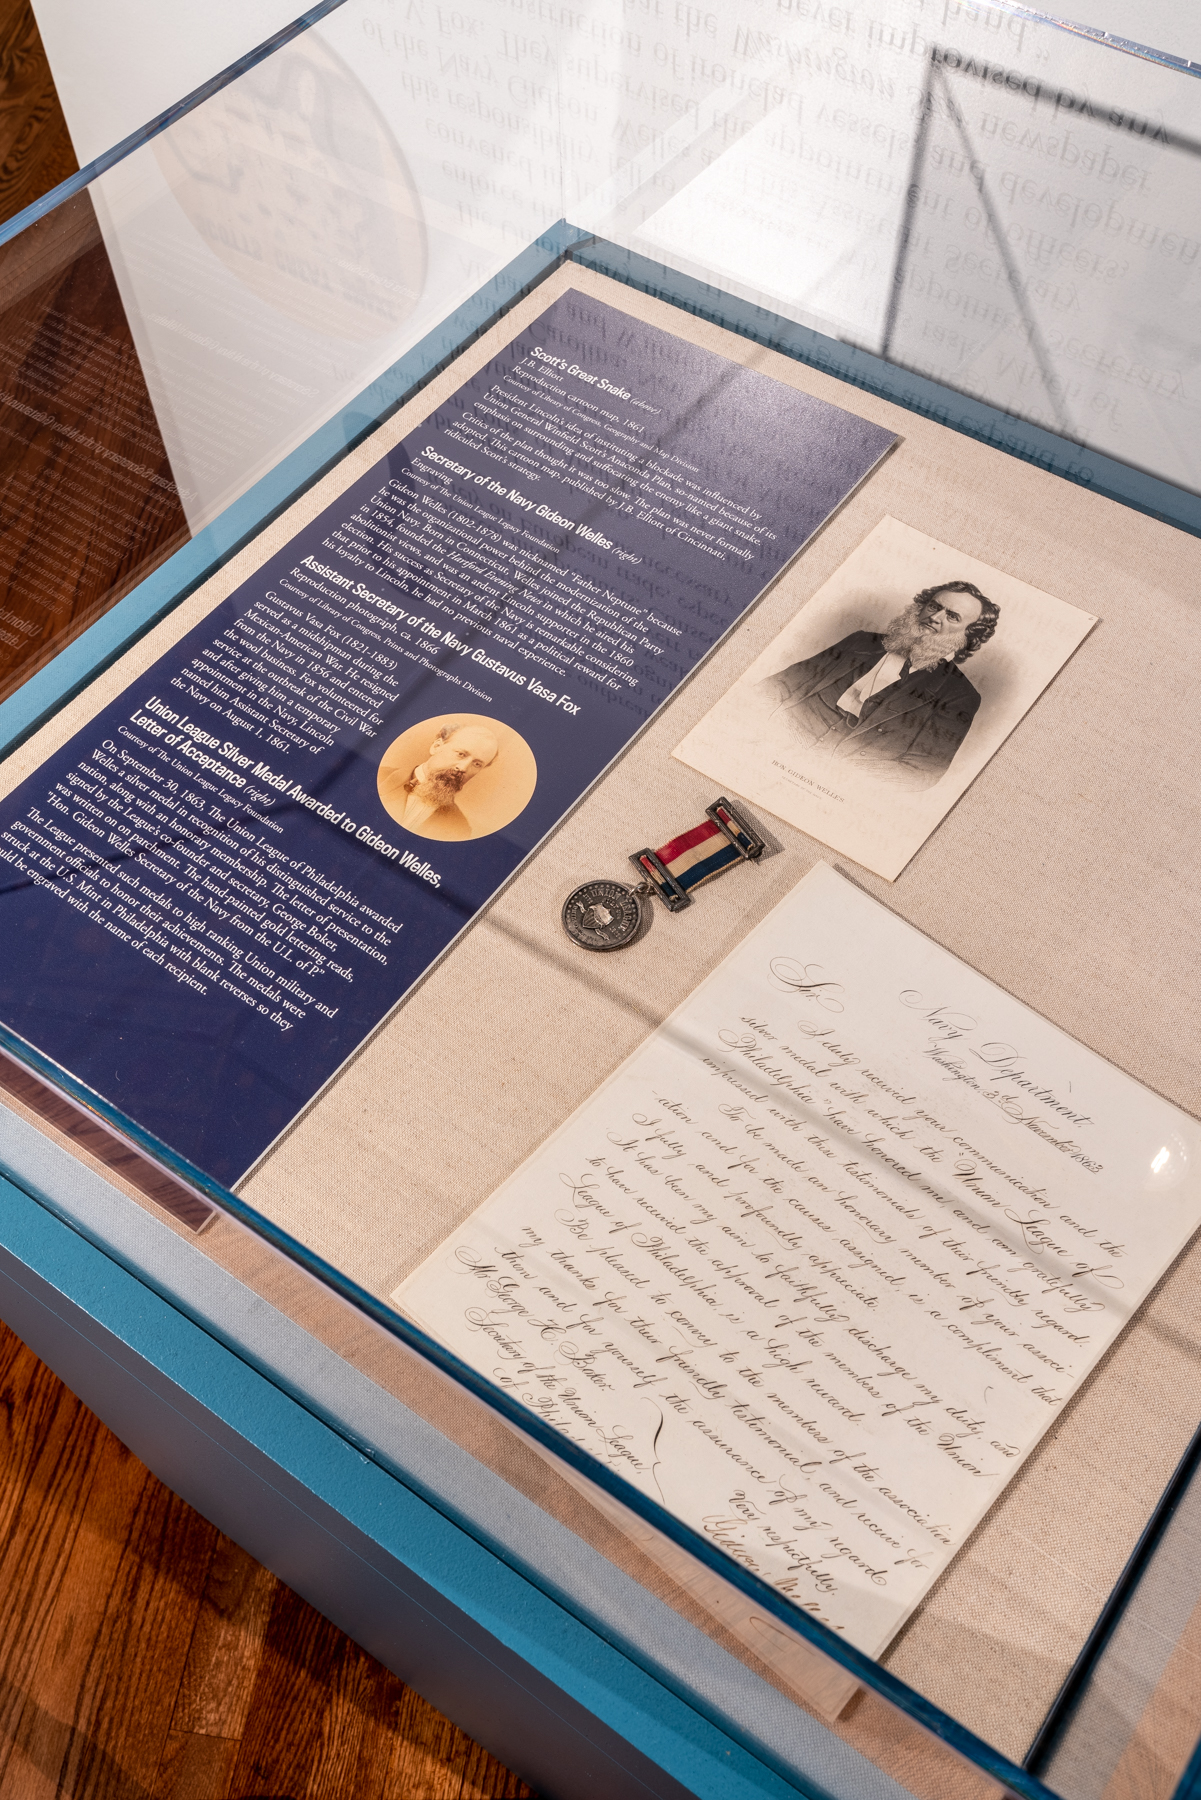 Scott's Great Snake (above)
J.B. Elliott
Reproduction cartoon map, 1861
Courtesy of Library of Congress, Geography and Map Division
President Lincoln's idea of instituting a blockade was influenced by
Union General Winfield Scott's Anaconda Plan, so-named because of its
emphasis on surrounding and suffocating the enemy like a giant snake.
Critics of the plan thought it was too slow. The plan was never formally
adopted. This cartoon map, published by J.B. Elliott of Cincinnati,
ridiculed Scott's strategy.
Secretary of the Navy Gideon Welles (right)
Engraving
Courtesy of The Union League Legacy Foundation
Gideon Welles (1802-1878) was nicknamed "Father Neptune" because
he was the organizational power behind the modernization of the
Union Navy. Born in Connecticut, Welles joined the Republican Party
in 1854, founded the Hartford Evening News in which he aired his
abolitionist views, and was an ardent Lincoln supporter in the 1860
election. His success as Secretary of the Navy is remarkable considering
that prior to his appointment in March 1861 as a political reward for
his loyalty to Lincoln, he had no previous naval experience.
Assistant Secretary of the Navy Gustavus Vasa Fox
Reproduction photograph, ca. 1866
Courtesy of Library of Congress, Prints and Photographs Division
Gustavus Vasa Fox (1821-1883)
served as a midshipman during the
Mexican-American War. He resigned
from the Navy in 1856 and entered
the wool business. Fox volunteered for
service at the outbreak of the Civil War
and after giving him a temporary
appointment in the Navy, Lincoln
named him Assistant Secretary of
the Navy on August 1, 1861.
Union League Silver Medal Awarded to Gideon Welles,
Letter of Acceptance (right)
Courtesy of The Union League Legacy Foundation
On September 30, 1863, The Union League of Philadelphia awarded
Welles a silver medal in recognition of his distinguished service to the
nation, along with an honorary membership. The letter of presentation,
signed by the League's co-founder and secretary, George Boker,
was written on on parchment. The hand-painted gold lettering reads,
"Hon. Gideon Welles Secretary of the Navy from the U.L. of P."
The League presented such medals to high ranking Union military and
government officials to honor their achievements. The medals were
struck at the U.S. Mint in Philadelphia with blank reverses so they
could be engraved with the name of each recipient.
HON. GIDEON WELLES.
Navy Department,
Washington, 3d November 1863
Sir
I duly received your communication and the
silver medal with which the "Union League of
Philadelphia" have honored me, and am gratefully
impressed with these testimonials of their friendly regard.
To be made an honorary member of your associ-
-ation and for the causes assigned, is a compliment that
I fully and profoundly appreciate.
It has been my aim to faithfully discharge my duty and
to have received the approval of the members of the Union
League of Philadelphia, is a high reward.
Be pleased to convey to the members of the association
my thanks for their friendly testimonial, and receive for
them and for yourself the assurance of my regard
Very respectfully,
Gideon Welles
Mr George H. Boker.
Secretary of the Union League,
of